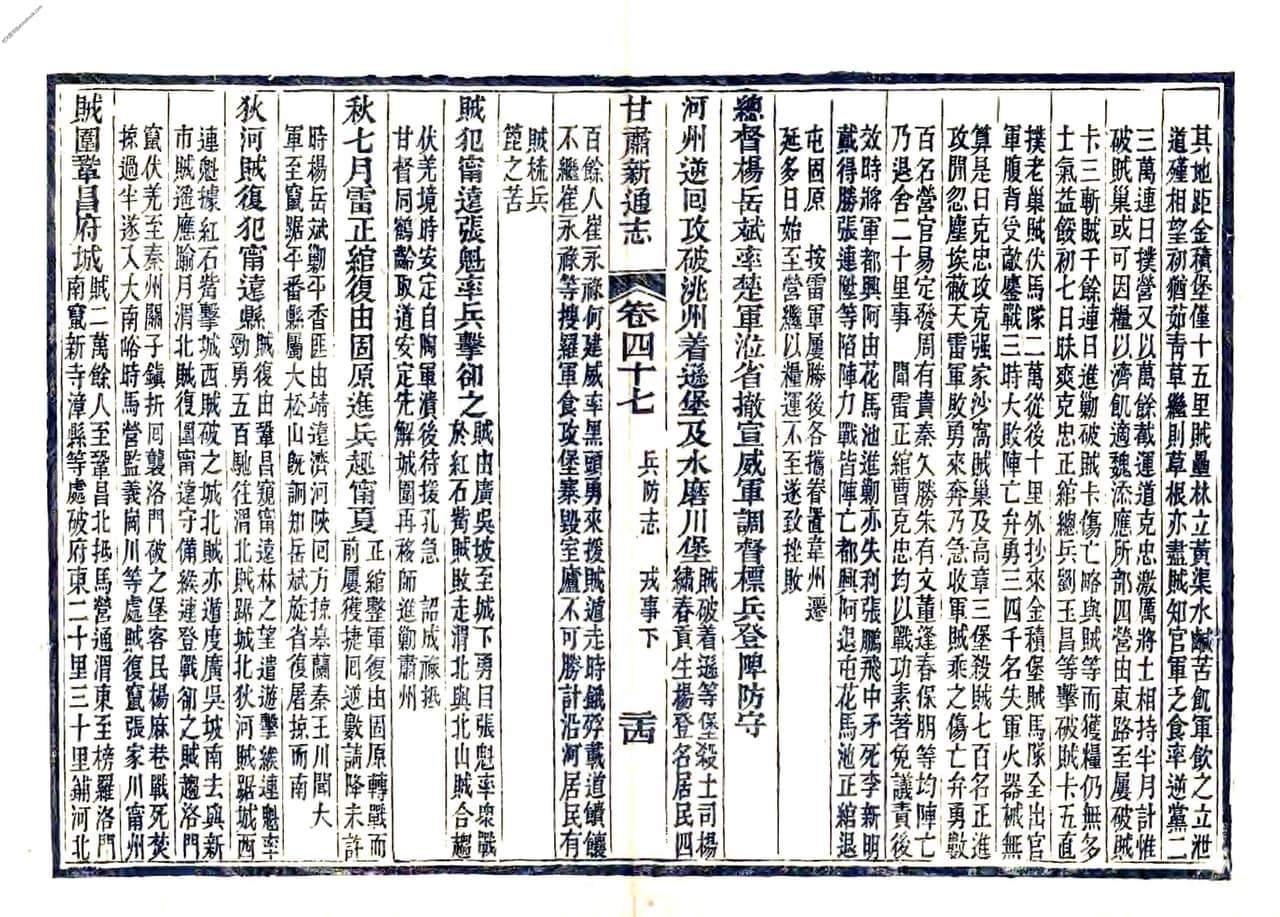 其地距金積堡僅十五里賊壘林立黃渠水鹹苦飢軍飲之立泄
道殣相望初猶茹靑草繼則草根亦盡賊知官軍乏食率逆黨二
三萬連日撲營又以萬餘截運道克忠激厲將士相持半月計惟
破賊巢或可因糧以濟飢適魏添應所部四營由東路至屢破賊
卡三斬賊千餘連日進勦破賊卡傷亡略與賊等而獲糧仍無多
士氣益餒初七日昧爽克忠正綰總兵劉玉昌等擊破賊卡五直
撲老巢賊伏馬隊二萬從後十里外抄來金積堡賊馬隊全出官
軍腹背受敵鏖戰三時大敗陣亡弁勇三四千名失軍火器械無
算是日克忠攻克强家沙窩賊巢及高章三堡殺賊七百名正進
攻閒忽塵埃蔽天雷軍敗勇來奔乃急收軍賊乘之傷亡弁勇數
百名營官易定發周有貴秦久勝朱有文董逢春保朋等均陣亡
乃退舍二十里事　聞雷正綰曹克忠均以戰功素著免議責後
效時將軍都興阿由花馬池進勦亦失利張鵬飛中矛死李新明
戴得勝張連陞等陷陣力戰皆陣亡都興阿退屯花馬池正綰退
屯固原　按雷軍屢勝後各攜眷置韋州遷
延多日始至營繼以糧運不至遂致挫敗
總督楊岳斌率楚軍涖省撤宣威軍調督標兵登陴防守
河州逆回攻破洮州着遜堡及水磨川堡賊破着遜等堡殺土司楊
繡春貢生楊登名居民四
甘肅新通志　卷四十七　兵防志　戎事下　二十四
百餘人崔永祿何建威率黑頭勇來援賊遁走時餓殍載道饋饟
不繼崔永祿等搜羅軍食攻堡寨毀室廬不可勝計沿河居民有
賊梳兵
篦之苦
賊犯甯遠張魁率兵擊卻之賊由廣吳坡至城下勇目張魁率衆戰
於紅石嘴賊敗走渭北與北山賊合趨
伏羌境時安定自陶軍潰後待援孔急　詔成祿抵
甘督同鶴齡取道安定先解城圍再移師進勦肅州
秋七月雷正綰復由固原進兵趣甯夏正綰整軍復由固原轉戰而
前屢獲捷回逆數請降未許
時楊岳斌勦平香匪由靖遠濟河陝回方掠皋蘭秦王川聞大
軍至竄踞平番縣屬大松山旣調知岳斌旋省復屠掠而南
狄河賊復犯甯遠縣賊復由鞏昌窺甯遠林之望遣遊擊緱連魁率
勁勇五百馳往渭北賊踞城北狄河賊踞城西
連魁據紅石嘴擊城西賊破之城北賊亦遁度廣吳坡南去與新
市賊遙應踰月渭北賊復圍甯遠守備緱連登戰卻之賊趨洛門
竄伏羌至秦州關子鎭折回襲洛門破之堡客民楊麻巷戰死焚
掠過半遂入大南峪時馬營監義崗川等處賊復竄張家川甯州
賊圍鞏昌府城賊二萬餘人至鞏昌北抵馬營通渭東至榜羅洛門
南竄新寺漳縣等處破府東二十里三十里鋪河北